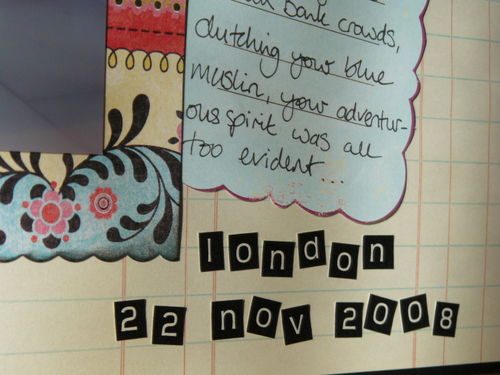 bank crowds,
clutching your blue
muslin, your adventur-
ous spirit was all
too evident...
london
22 nov 2008